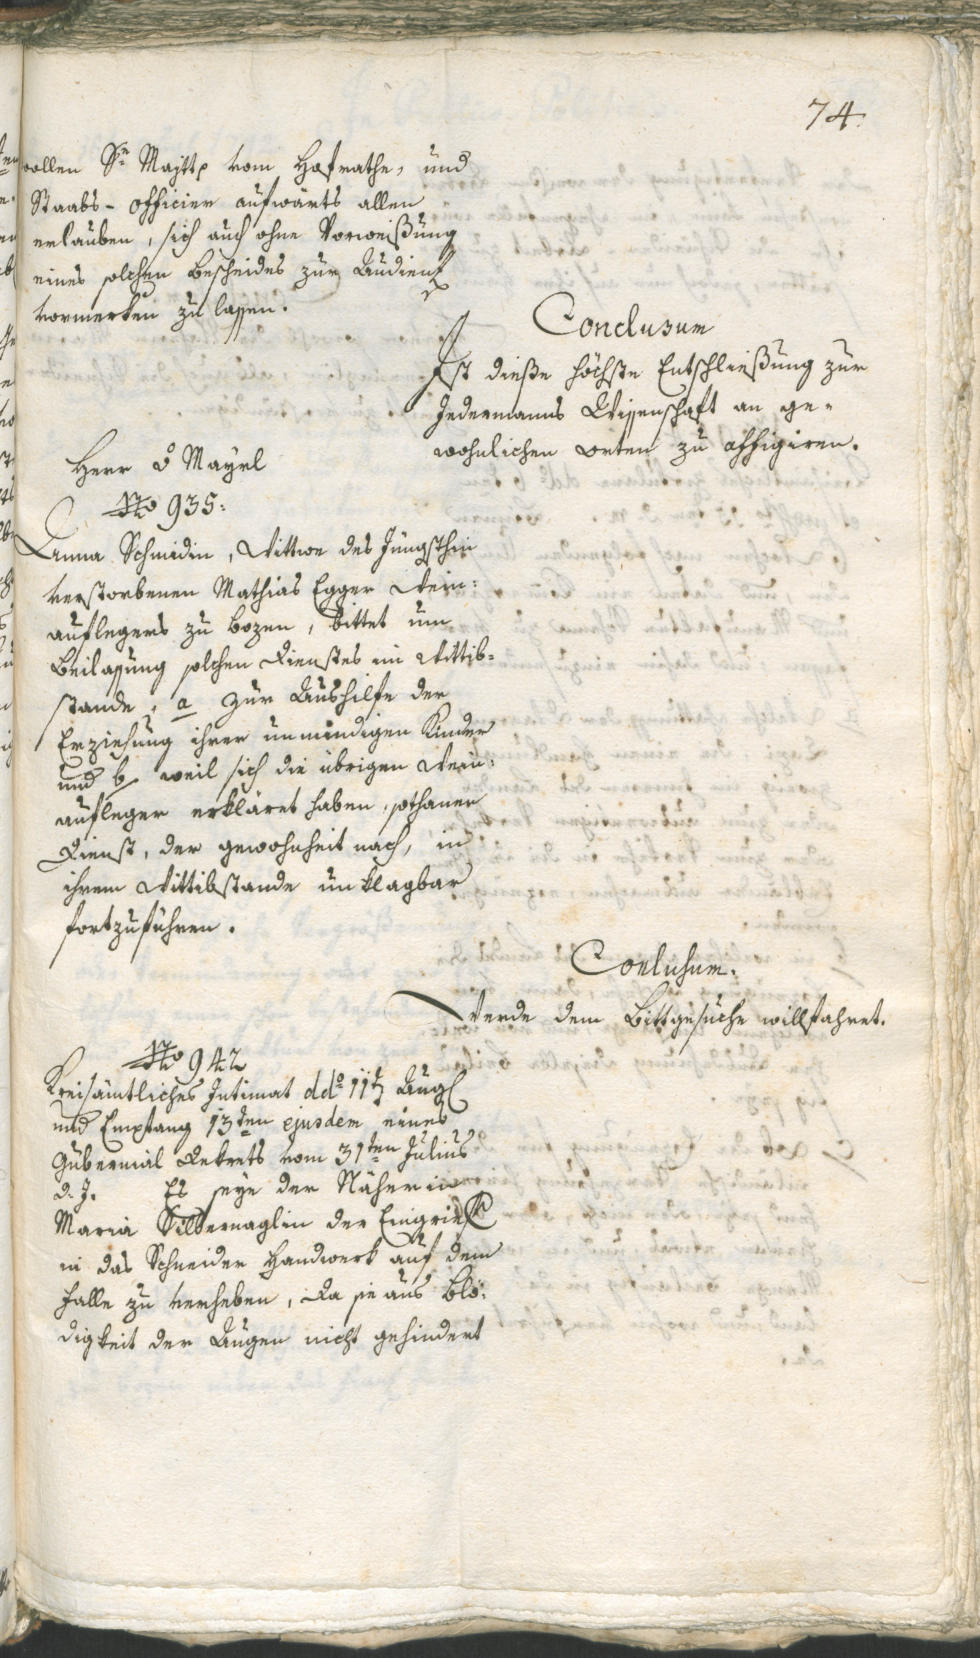 74.
wollen Se Majtt. vom Hofrathe, und
Staabs-officier aufwärts allen
erlauben, sich auch ohne Vorweißung
eines solchen Bescheides zur Audienz
vormerken zu lassen.
Conclusum
Ist dieße höchste Entschließung zur
Jedermanns Wissenschaft an ge-
wohnlichen orten zu affigiren.
Herr v Mayrl
No 935:
Anna Schmidin, Wittwe des Jüngsthin
verstorbenen Mathias Egger Wein:
auflegers zu Bozen, bittet um
Beilassung solchen Dienstes im Wittib-
stande, a zur Aushilfe der
Erziehung ihrer unmündigen Kinder
und b weil sich die übrigen Wein:
aufleger erkläret haben, sothanen
Dienst, der gewohnheit nach, in
ihrem Wittibstande unklagbar
fortzuführen.
Conclusum.
Werde dem Bittgesuche willfahret.
No 942
Kreisämtliches Intimat ddo 11t Aug
und Empfang 13ten ejusdem eines
Gubernial Dekrets vom 31ten Julius
d. J. Es seye der Näherin
Maria Silbernaglin der Eingrif
in das Schneider Handwerk auf dem
Falle zu verheben, Da sie aus Blö:
digkeit der Augen nicht gehindert